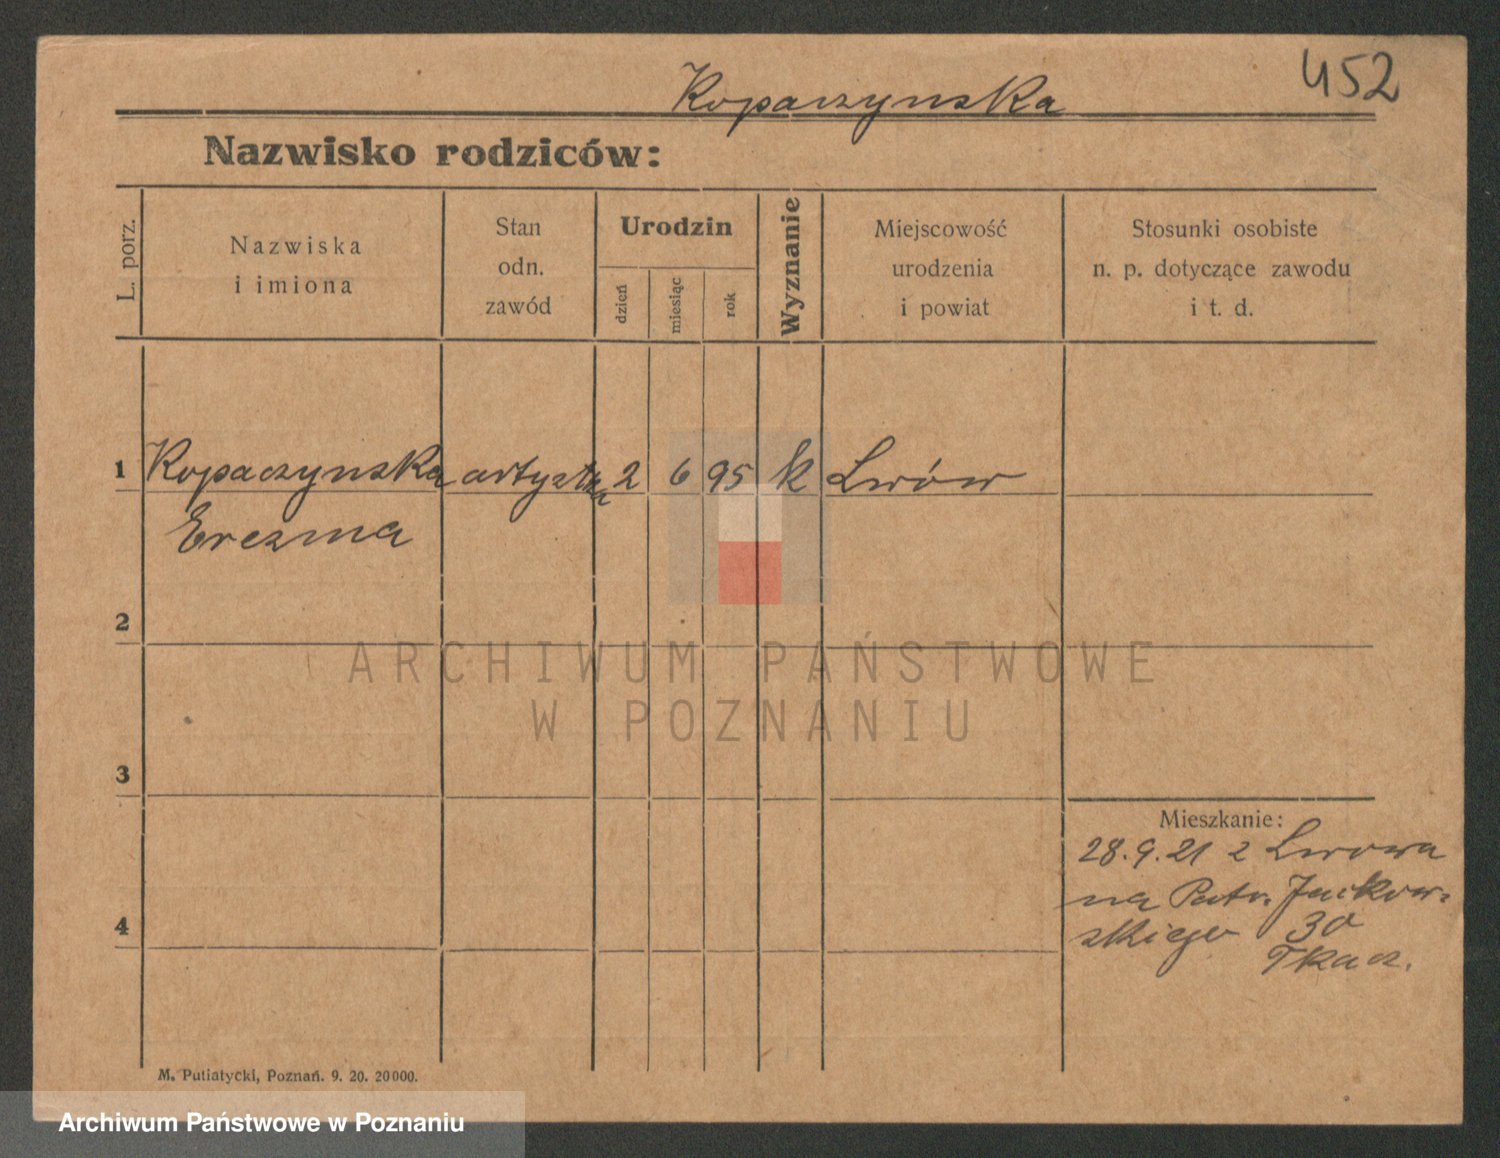 452
Kopaczynska
Nazwisko rodziców:
L. porz.
Nazwiska
i imiona
Stan
odn.
zawód
Urodzin
dzień
miesiąc
rok
Wyznanie
Miejscowość
urodzenia
i powiat
Stosunki osobiste
n. p. dotyczące zawodu
i t. d.
1 Kopaczynska artystka 2 6 95 k Lwów
Erezma
2
ARCHIWUM PAŃSTWOWE
W POZNANIU
3
Mieszkanie:
28.9.21 z Lwowa
na Patr. Jackow-
skiego 30
4
Tkacz.
M. Putiatycki, Poznań. 9. 20. 20000.
Archiwum Państwowe w Poznaniu